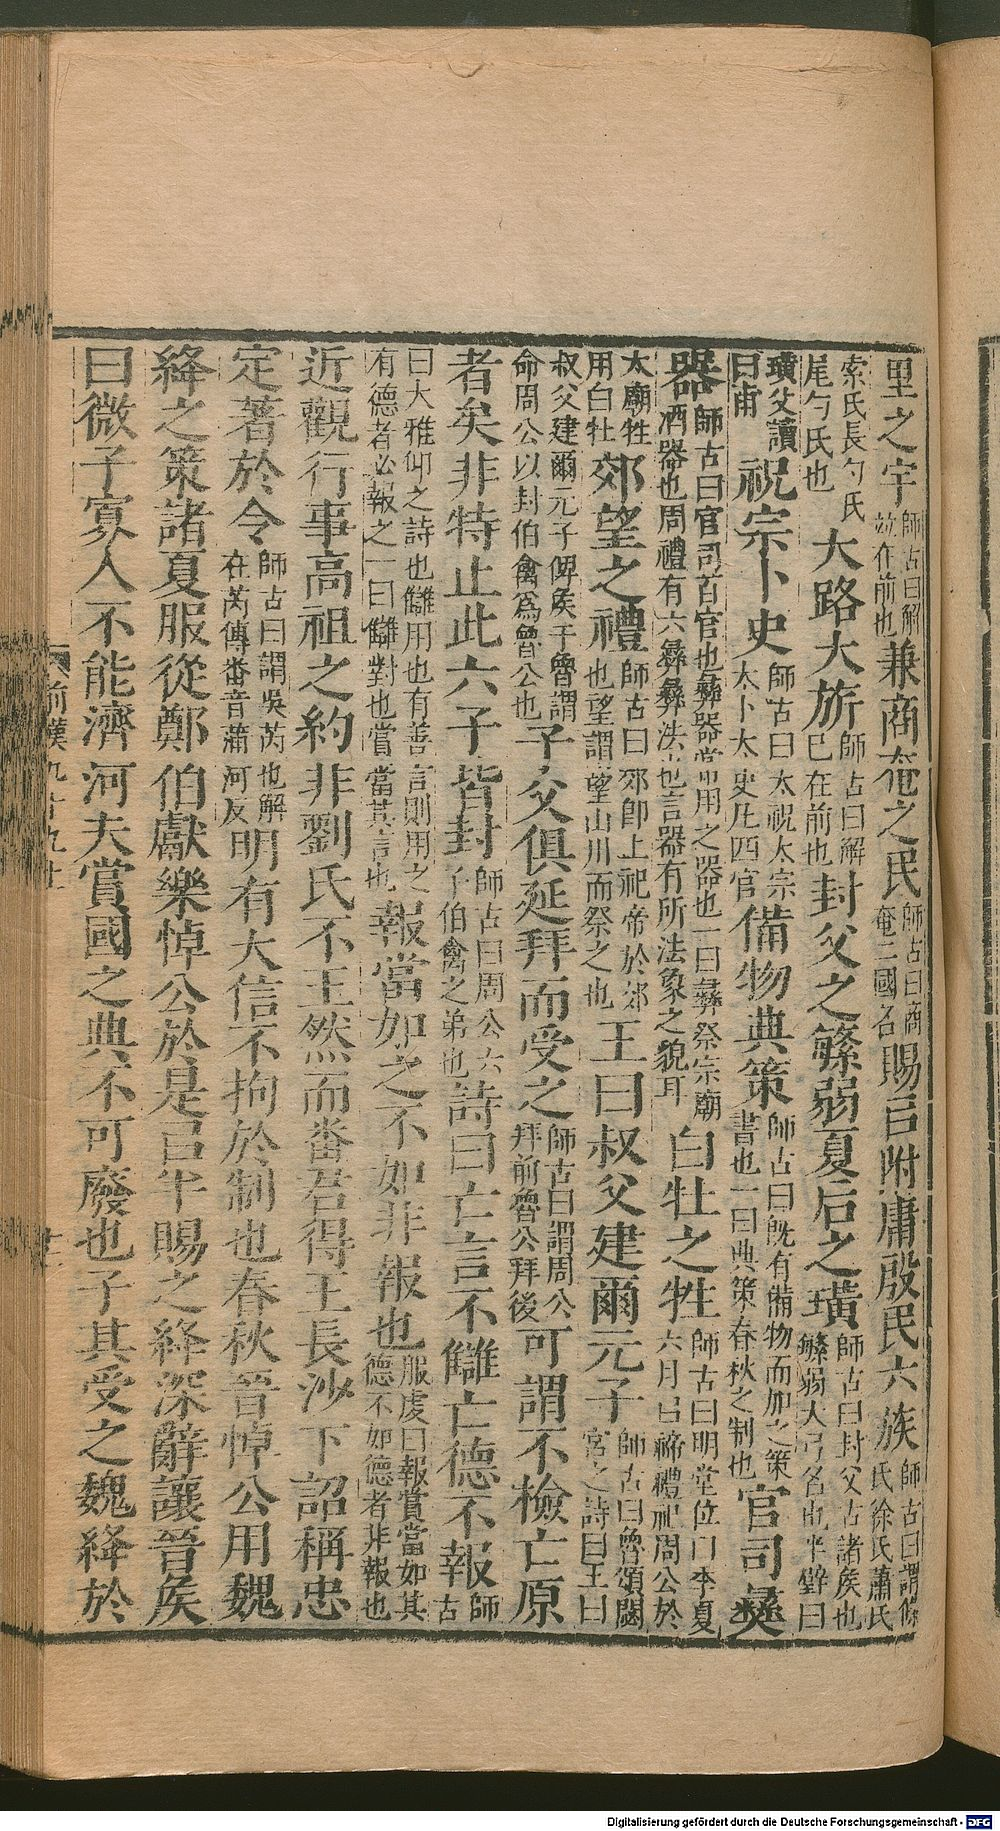 里之宇師古曰解竝在前也兼商奄之民師古曰商奄二國名賜㠯附庸殷民六族師古曰謂條氏徐氏蕭氏
索氏長勺氏尾勺氏也大路大旂師古曰解已在前也封父之繁弱夏后之璜師古曰封父古諸矦也繁弱大弓名也半璧曰
璜父讀曰甫祝宗卜史師古曰太祝太宗太卜太史凡四官備物典策師古曰旣有備物而加之策書也一曰典策春秋之制也官司彝
器師古曰官司百官也彝器常用之器也一曰彝祭宗廟酒器也周禮有六彝彝法也言器有所法象之貌耳白牡之牲師古曰明堂位曰季夏六月㠯禘禮祀周公於
太廟牲用白牡郊望之禮師古曰郊卽上祀帝於郊也望謂望山川而祭之也王曰叔父建爾元子師古曰魯頌閟宮之詩曰王曰
叔父建爾元子俾矦于魯謂命周公以封伯禽爲魯公也子父俱延拜而受之師古曰謂周公拜前魯公拜後可謂不檢亡原
者矣非特止此六子皆封師古曰周公六子伯禽之弟也詩曰亡言不讎亡德不報師古
曰大雅仰之詩也讎用也有善言則用之有德者必報之一曰讎對也賞當其言也報當如之不如非報也服虔曰報賞當如其德不如德者非報也
近觀行事高祖之約非劉氏不王然而番君得王長沙下詔稱忠
定著於令師古曰謂吳芮也解在芮傳番音蒲河反明有大信不拘於制也春秋晉悼公用魏
絳之策諸夏服從鄭伯獻樂悼公於是㠯半賜之絳深辭讓晉矦
曰微子寡人不能濟河夫賞國之典不可廢也子其受之魏絳於
前漢九十九上